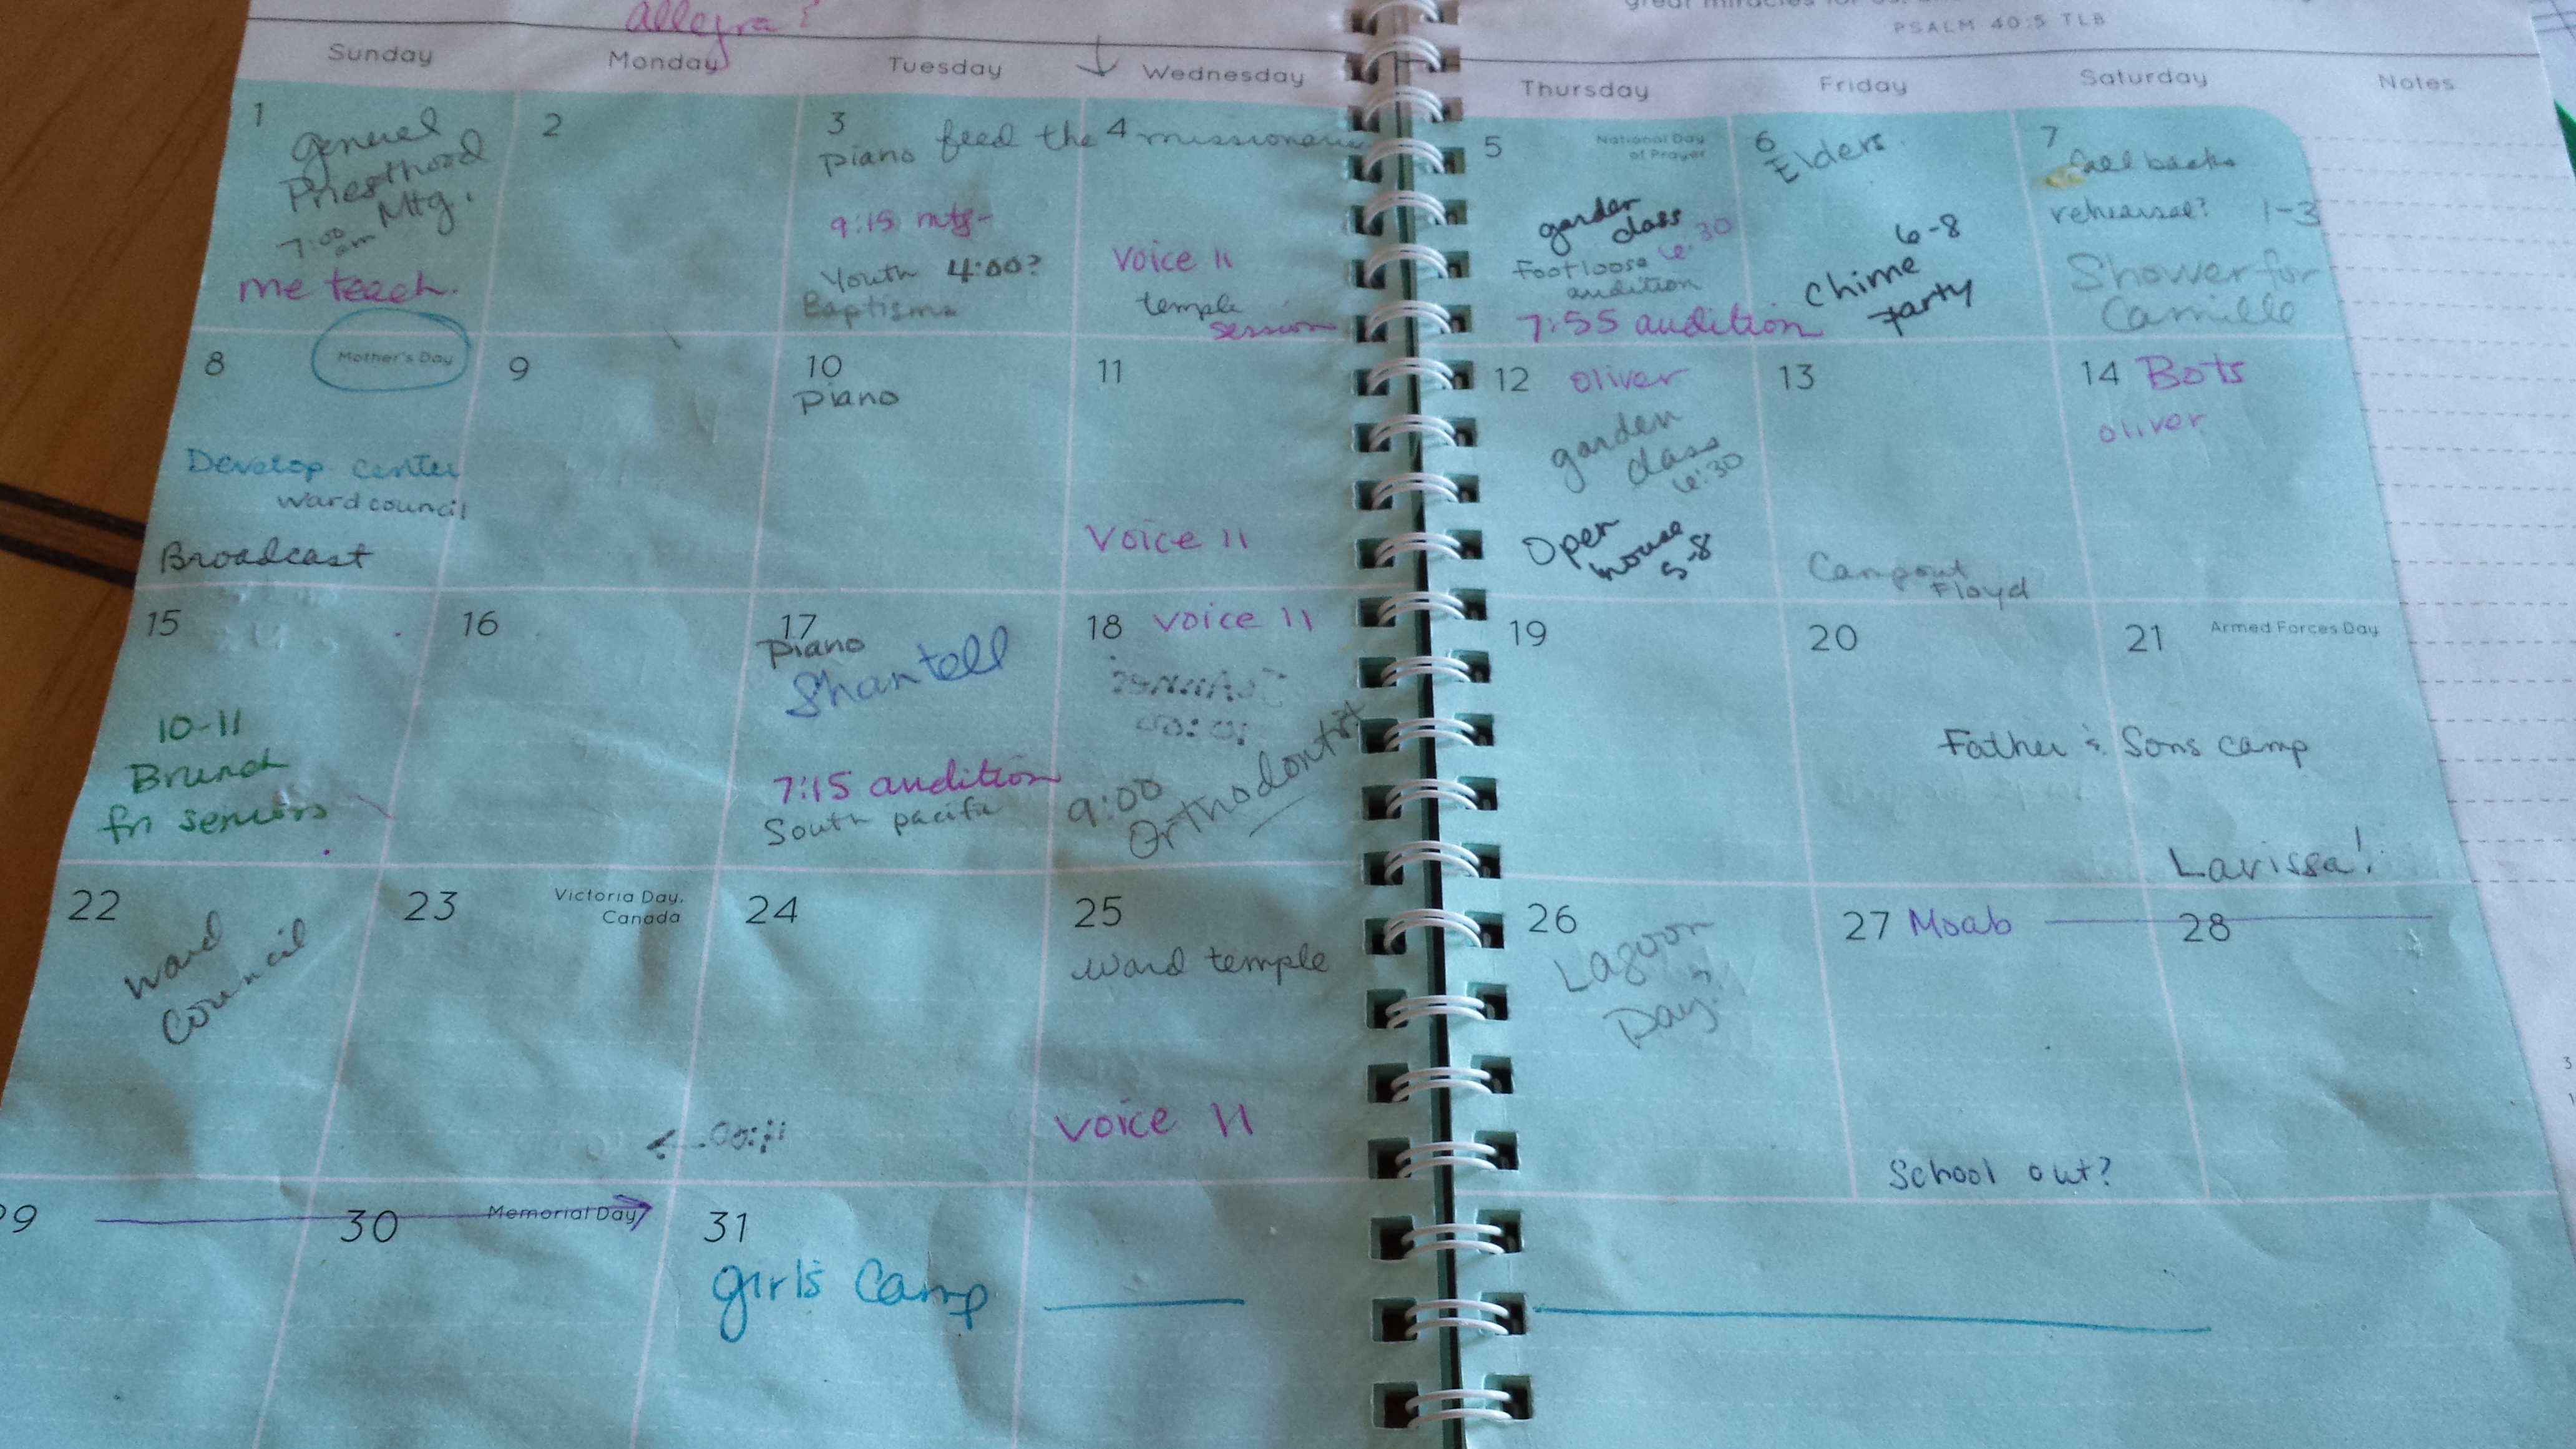 allegra?
PSALM 40:5 TLB
Sunday
Monday
Tuesday
Wednesday
Thursday
Friday
Saturday
Notes
1
General
Priesthood
Mtg.
7:00
am
me teach.
2
3
piano feed the 4 missionaries
9:15 mtg-
Youth 4:00?
Baptisms
Voice 11
temple
session
5
National Day
of Prayer
garden
class
6:30
Footloose
audition
7:55 audition
6
Elders
6-8
Chime
Party
7
Call backs
rehearsal? 1-3
Shower for
Camille
8
Mother's Day
Develop. center
ward council
Broadcast
9
10
piano
11
Voice 11
12 oliver
garden
class
6:30
Open
house
5-8
13
Campout
Floyd
14 Bots
oliver
15
10-11
Brunch
for seniors
16
17
piano
Shantell
7:15 audition
South pacific
18 voice 11
9:00
Orthodontist
19
20
21
Armed Forces Day
Father & Sons camp
Larissa!
22
ward
Council
23
Victoria Day,
Canada
24
25
ward temple
voice 11
26
Lagoon
Day?
27 Moab
28
School out?
9
30
Memorial Day
31
girls Camp